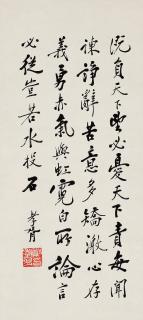 既負天下望必憂天下責每聞
諫諍辭苦意多矯激心存
義勇赤氣與虹霓白所論言
必從豈若水投石
孝胥